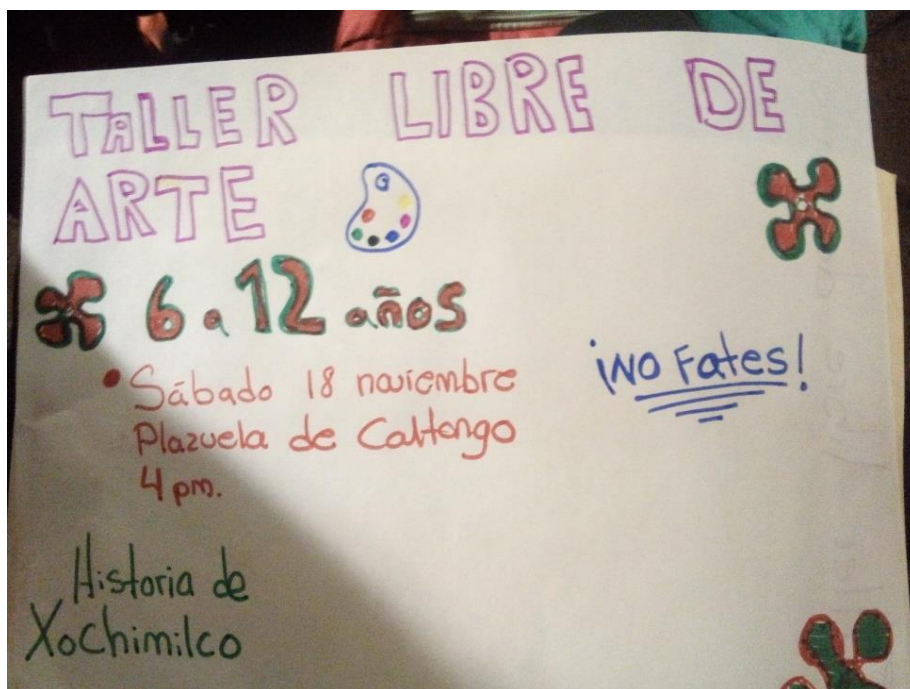 TALLER LIBRE DE
ARTE
6 a 12 años
• Sábado 18 noviembre
Plazuela de Caltongo
4 pm.
¡NO Fates!
Historia de
Xochimilco